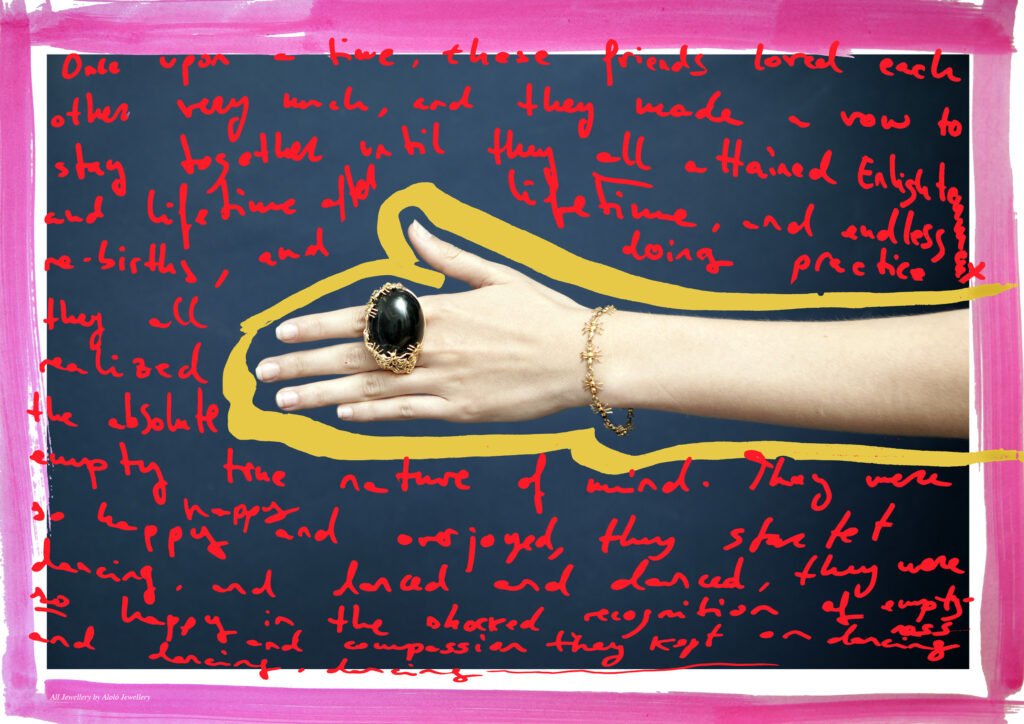 Once upon a time, these friends loved each
other very much, and they made a vow to
stay together until they all attained Enlightenment
and lifetime after lifetime, and endless
re-births, and doing practice
they all
realized
the absolute
empty true nature of mind. They were
so happy happy and overjoyed, they startet
dancing, and danced and danced, they were
so happy in the shared recognition of emptyness
and and compassion they kept on dancing
and dancing, dancing
All Jewellery by Alolo Jewellery